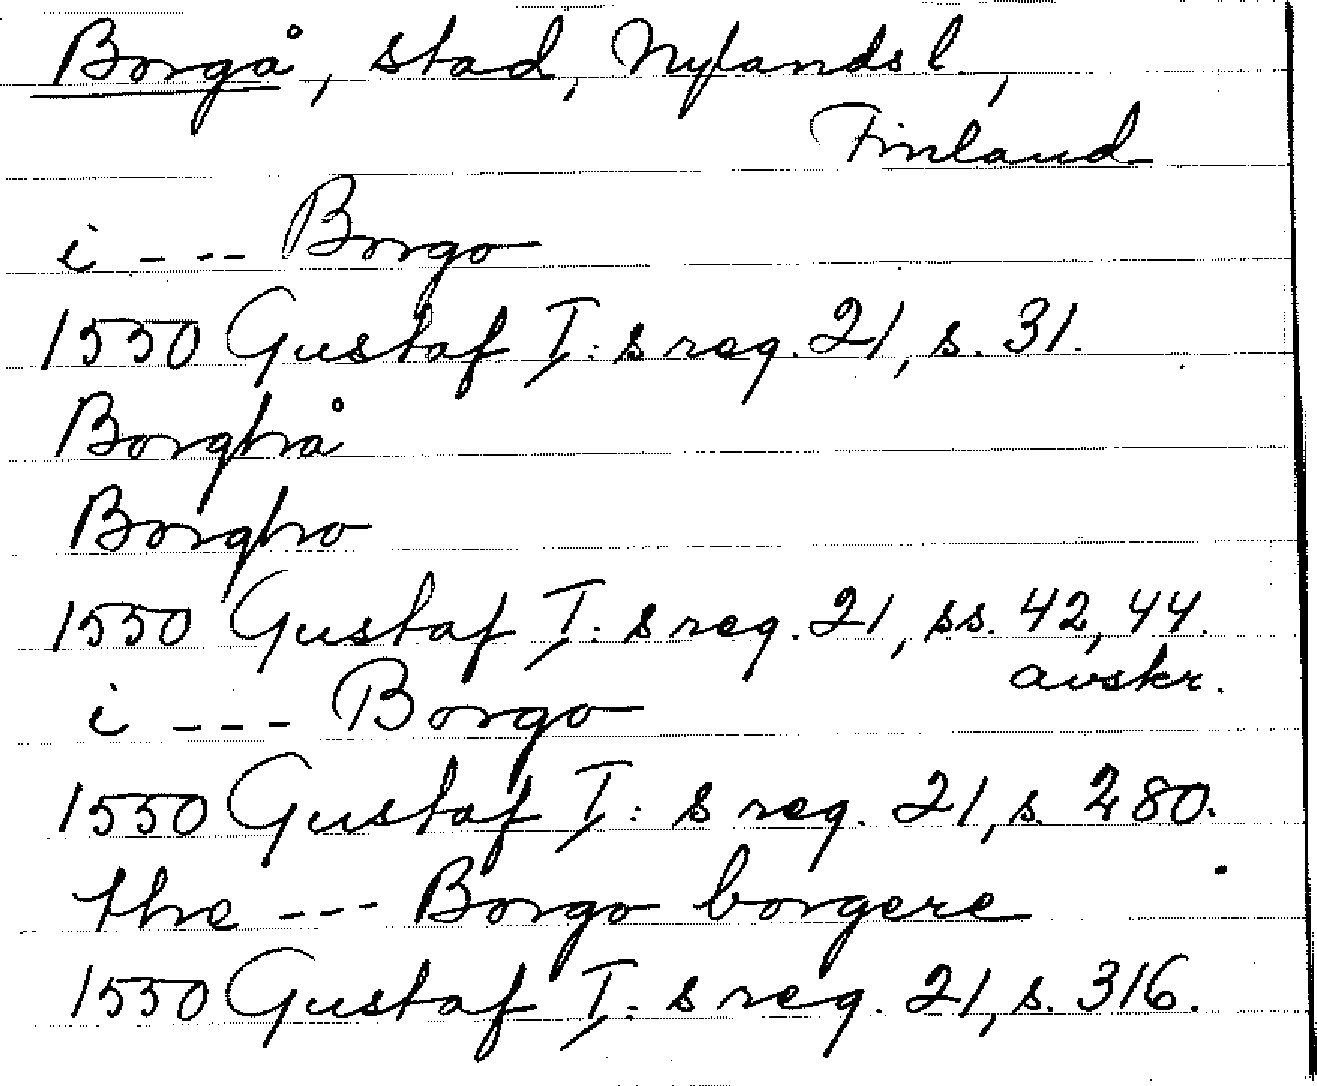 Borgå, stad, Nylands l.,
Finland
i --- Borgo
1550 Gustaf I:s reg. 21, s. 31.
Borghå
Borgho
1550 Gustaf I:s reg. 21, ss. 42, 44.
avskr.
i --- Borgo
1550 Gustaf I:s reg. 21, s. 280.
the --- Borgo borgere
1550 Gustaf I:s reg. 21, s. 316.